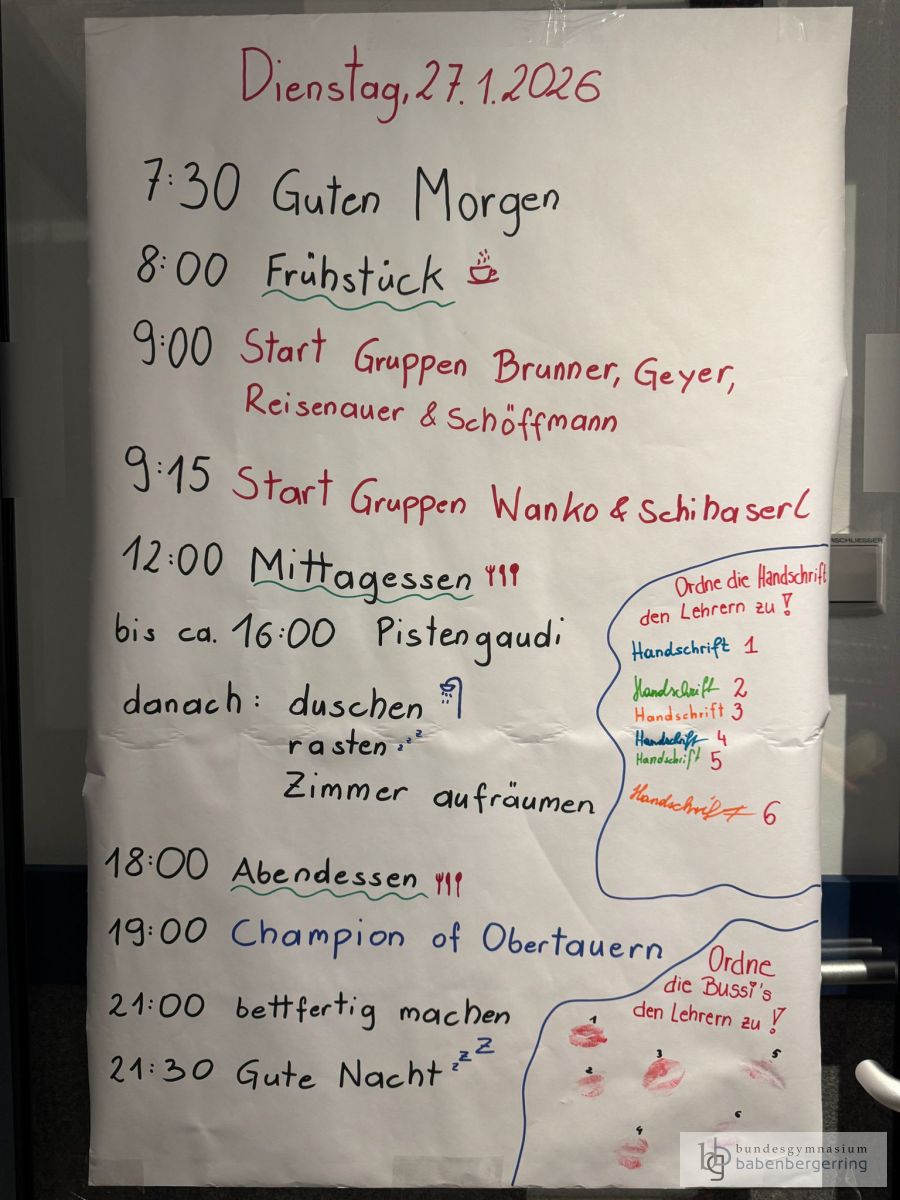 Dienstag, 27.1.2026
7:30 Guten Morgen
8:00 Frühstück
9:00 Start Gruppen Brunner, Geyer,
Reisenauer & Schöffmann
9:15 Start Gruppen Wanko & Schihaserl
12:00 Mittagessen
bis ca. 16:00 Pistengaudi
danach: duschen
rasten zzz
Zimmer aufräumen
18:00 Abendessen
19:00 Champion of Obertauern
21:00 bettfertig machen
21:30 Gute Nacht zzZ
Ordne die Handschrift
den Lehrern zu!
Handschrift 1
Handschrift 2
Handschrift 3
Handschrift 4
Handschrift 5
Handschrift 6
Ordne
die Bussi's
den Lehrern zu!
1
2
3
4
5
6
SCHLIESSER
bg bundesgymnasium
babenbergerring